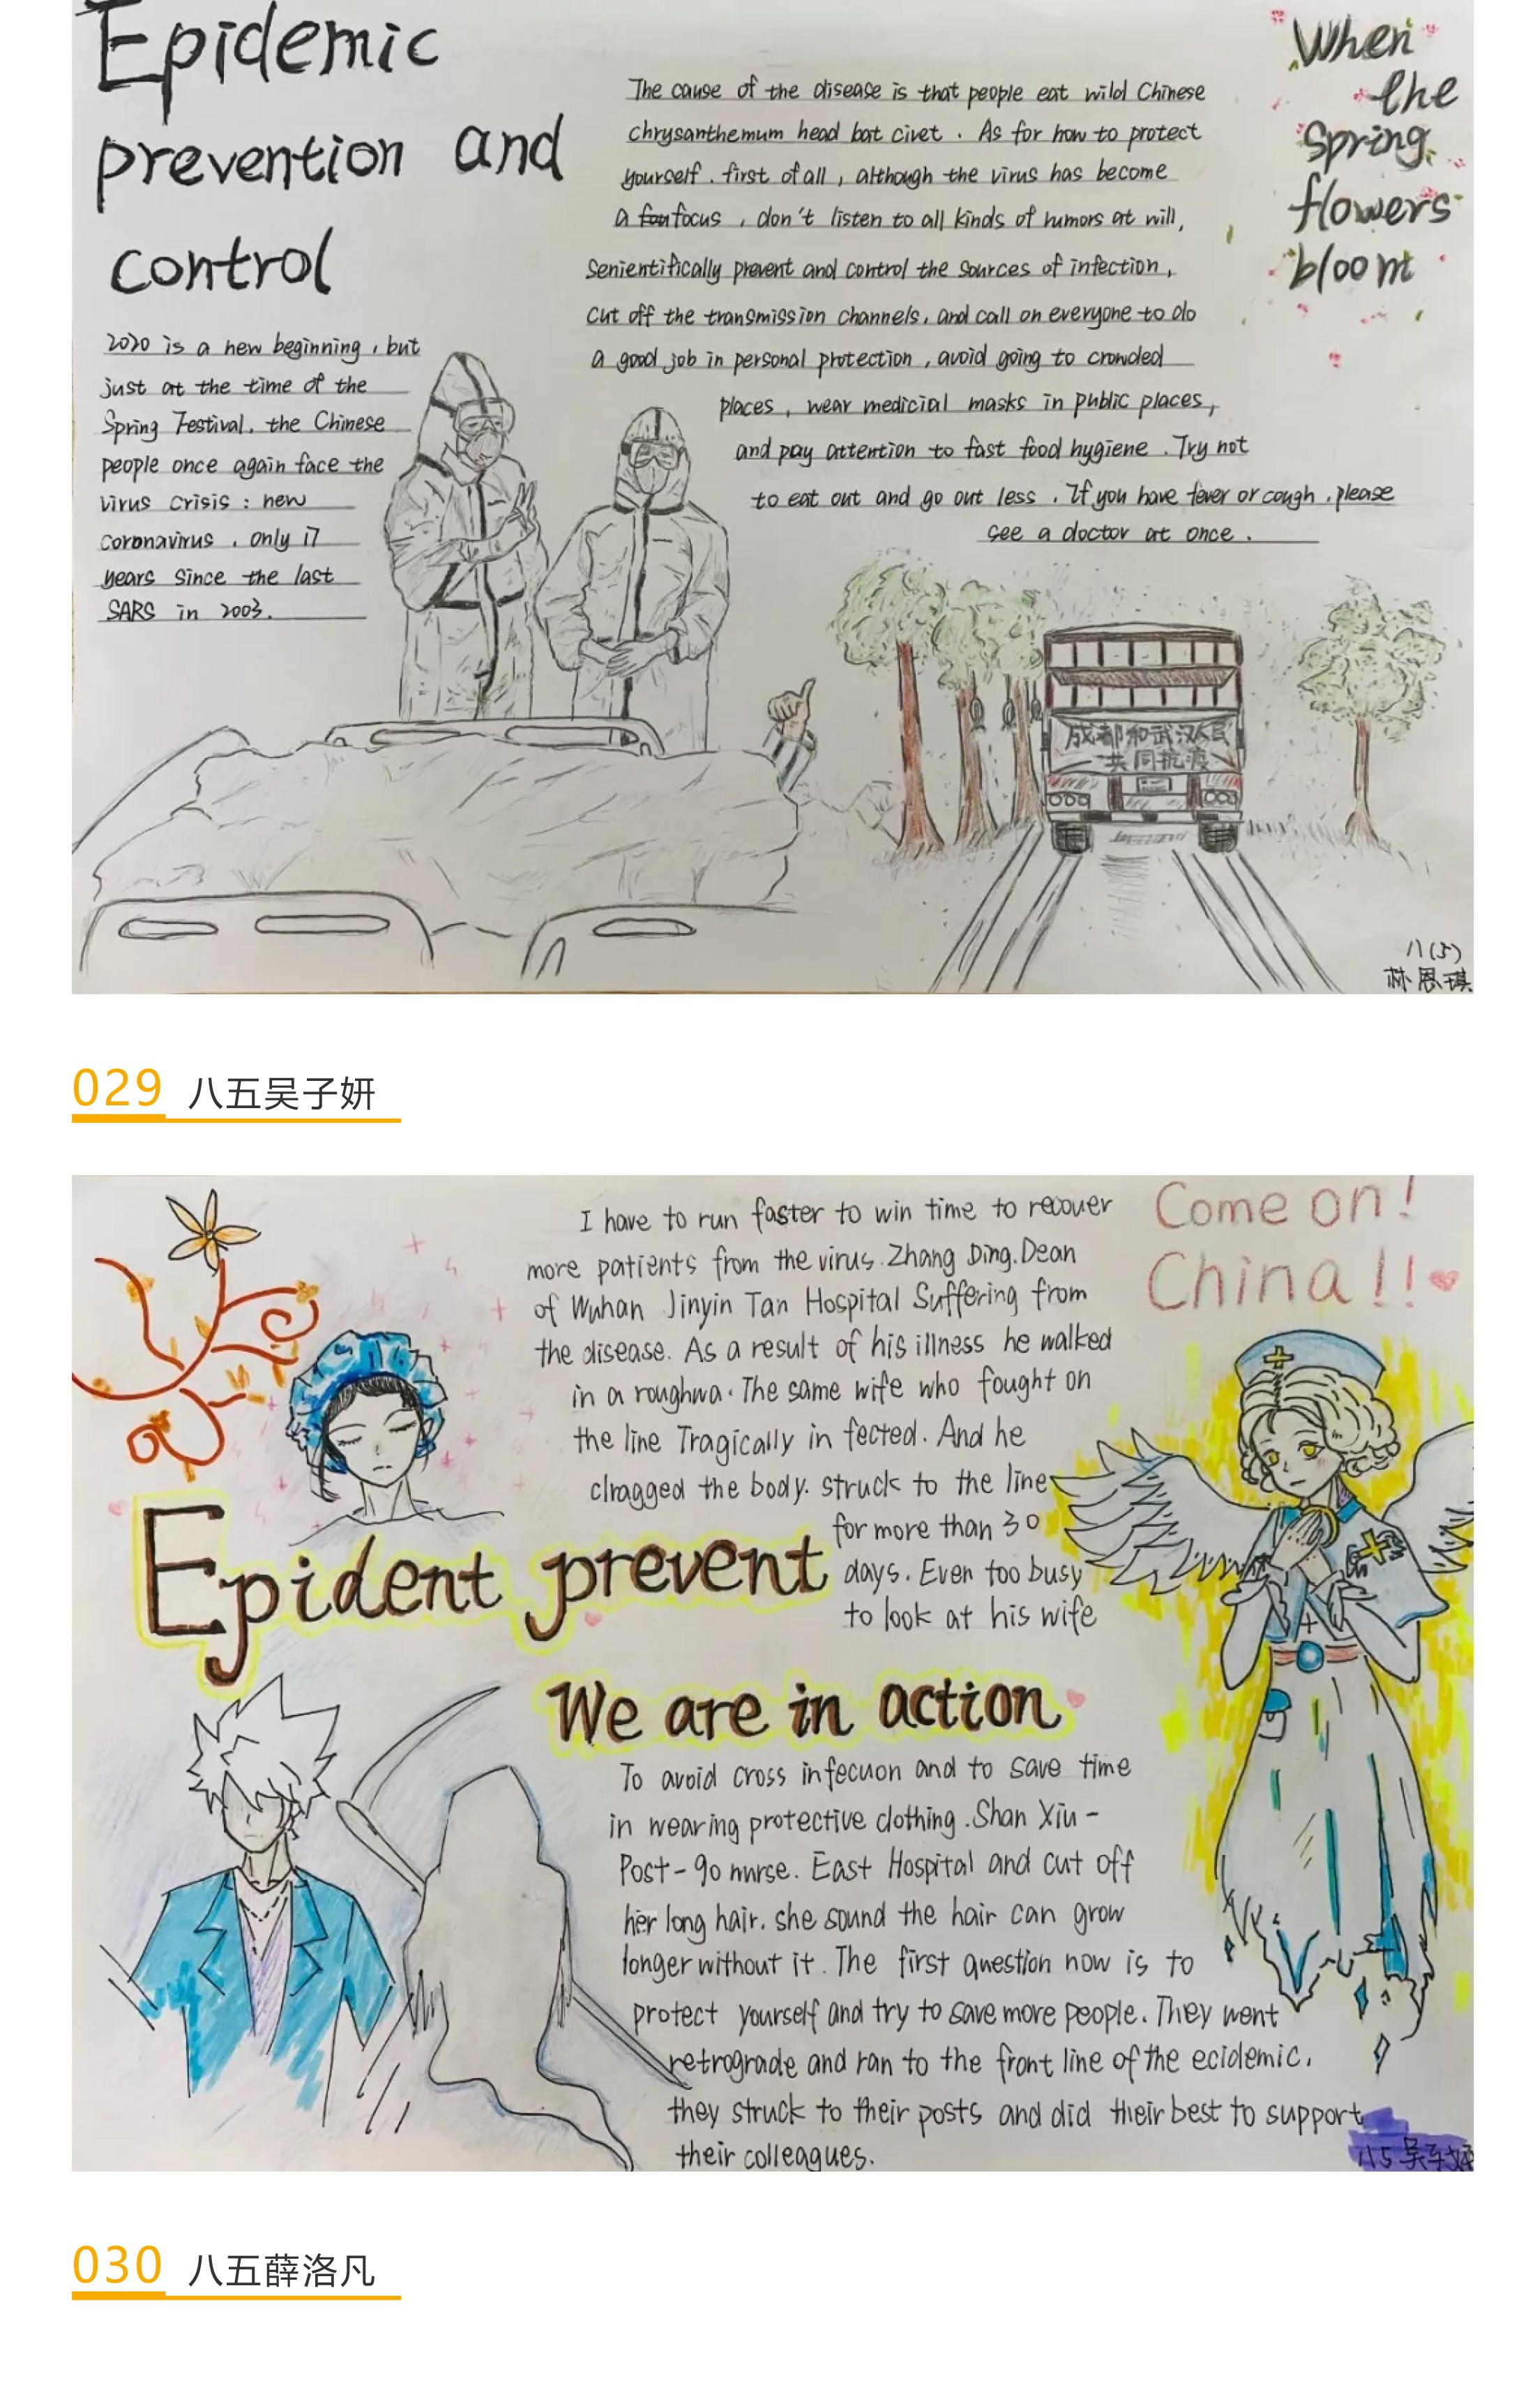 Epidemic
prevention and
control
2020 is a new beginning, but
just at the time of the
Spring Festival, the Chinese
people once again face the
virus crisis : new
coronavirus , only 17
years since the last
SARS in 2003.
The cause of the disease is that people eat wild Chinese
chrysanthemum head bat civet . As for how to protect
yourself . first of all , although the virus has become
a focus , don't listen to all kinds of rumors at will,
senientifically prevent and control the sources of infection,
cut off the transmission channels, and call on everyone to do
a good job in personal protection , avoid going to crowded
places , wear medicial masks in public places,
and pay attention to fast food hygiene . Try not
to eat out and go out less . If you have fever or cough , please
see a doctor at once .
When
the
Spring
flowers
bloom
成都和武汉人民
共同抗疫
八(5)
林思琪
029 八五吴子妍
I have to run faster to win time to recover
more patients from the virus. Zhang Ding. Dean
of Wuhan Jinyin Tan Hospital Suffering from
the disease. As a result of his illness he walked
in a roughwa. The same wife who fought on
the line Tragically in fected. And he
clragged the body. struck to the line
for more than 30
days. Even too busy
to look at his wife
Come on!
China!!
Epident prevent
We are in action
To avoid cross infecuon and to save time
in wearing protective clothing. Shan Xiu-
Post-90 nurse. East Hospital and cut off
her long hair. she sound the hair can grow
longer without it. The first question now is to
protect yourself and try to save more people. They went
retrograde and ran to the front line of the ecidemic.
they struck to their posts and did their best to support
their colleagues.
八5 吴子妍
030 八五薛洛凡